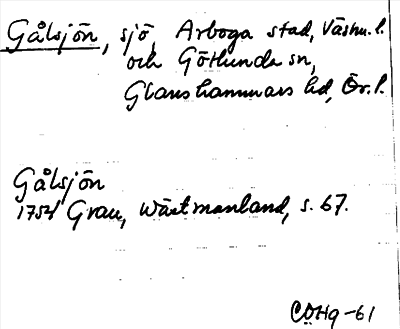 Gålsjön, sjö, Arboga stad, Västm. l.
och Götlunda sn,
Glanshammars hd, Ör. l.
Gålsjön
1754 Grau, Wästmanland, s. 67.
CÖHg-61